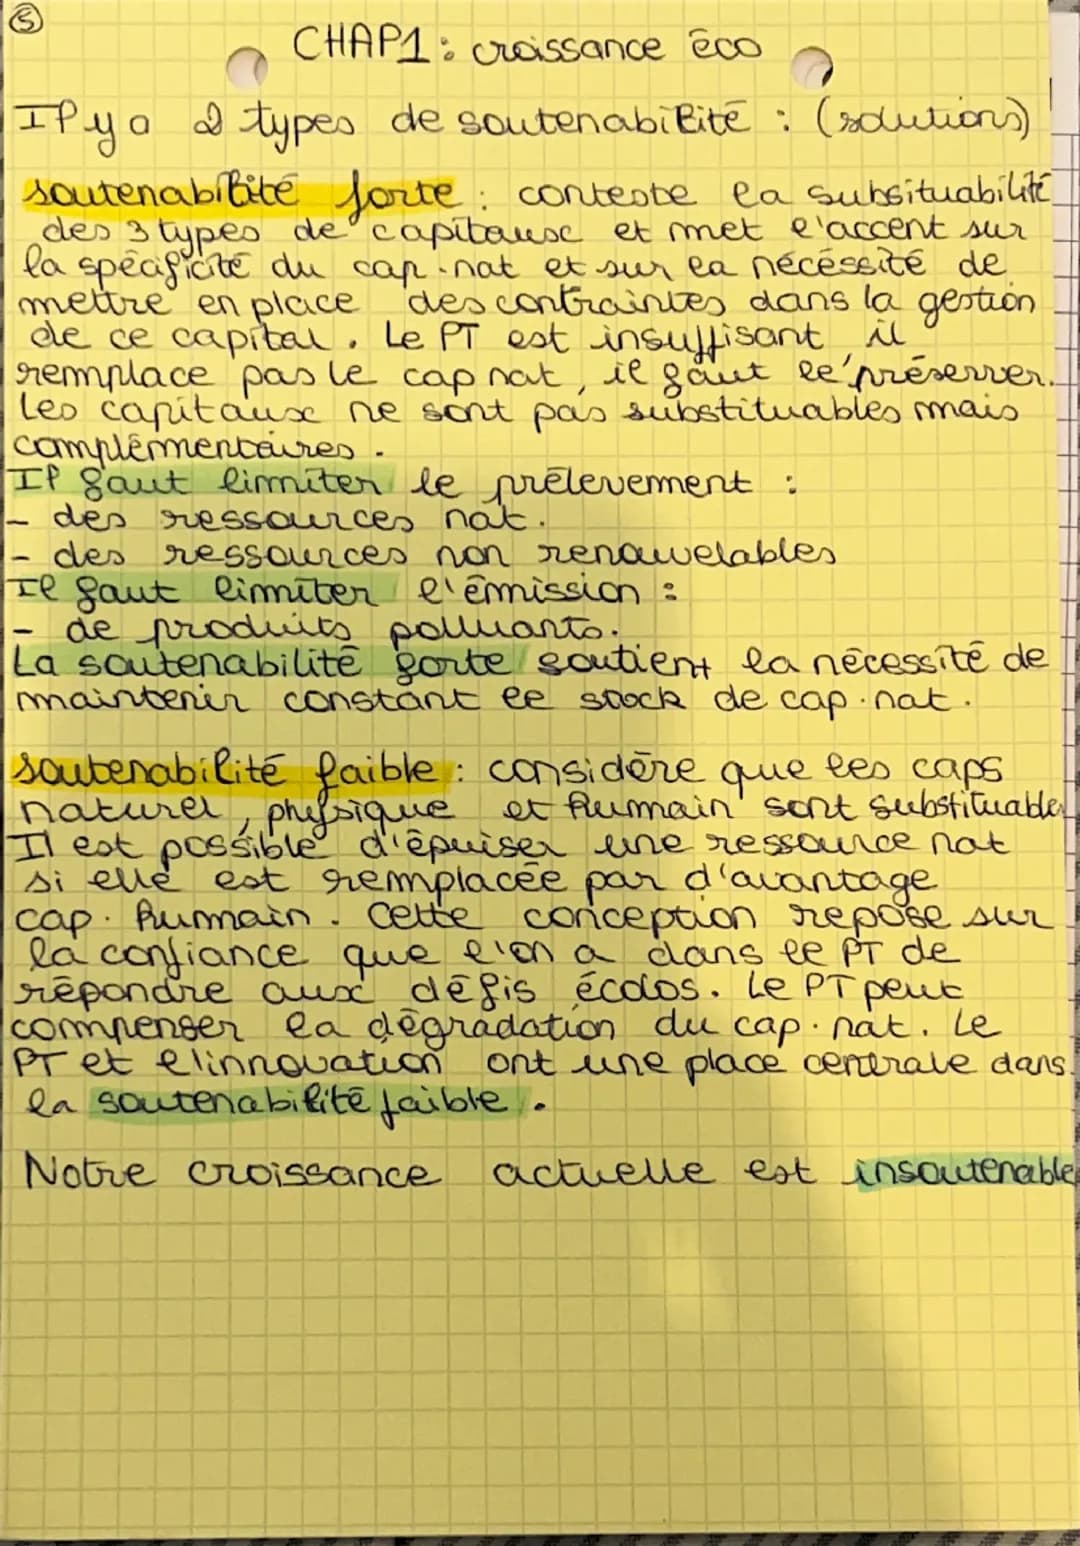 5
CHAP1 : croissance éco
Il y a 2 types de soutenabilité : (solutions)
soutenabilité forte : conteste la subsituabilité
des 3 types de capitaux et met l'accent sur
la spécificité du cap. nat et sur la nécéssité de
mettre en place des contraintes dans la gestion
de ce capital. Le PT est insuffisant, il
remplace pas le cap nat, il faut le préserver.
Les capitaux ne sont pas substituables mais
complémentaires.
Il faut limiter le prélevement :
- des ressources nat.
- des ressources non renouvelables
Il faut limiter l'émission :
- de produits polluants.
La soutenabilité forte soutient la nécessité de
maintenir constant le stock de cap. nat.
soutenabilité faible : considère que les caps
naturel, physique et humain sont substituables
Il est possible d'épuiser une ressource nat
si elle est remplacée par d'avantage
cap. humain. Cette conception repose sur
la confiance que l'on a dans le PT de
répondre aux défis écolos. Le PT peut
compenser la dégradation du cap. nat. Le
PT et l'innovation ont une place centrale dans
la soutenabilité faible.
Notre croissance actuelle est insoutenable